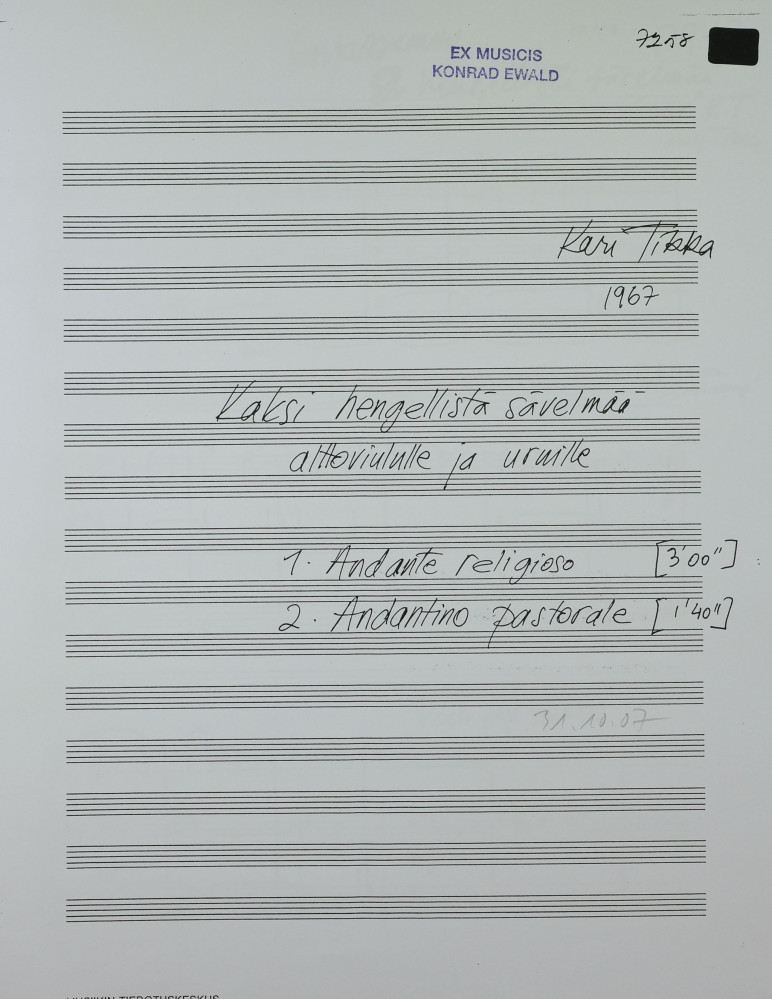 7258
EX MUSICIS
KONRAD EWALD
Kari Tikka
1967
Kaksi hengellistä sävelmää
alttoviululle ja uruille
1. Andante religioso [3'00"]
2. Andantino pastorale [1'40"]
31.10.07
MUSIIKIN TIEDOTUSKESKUS